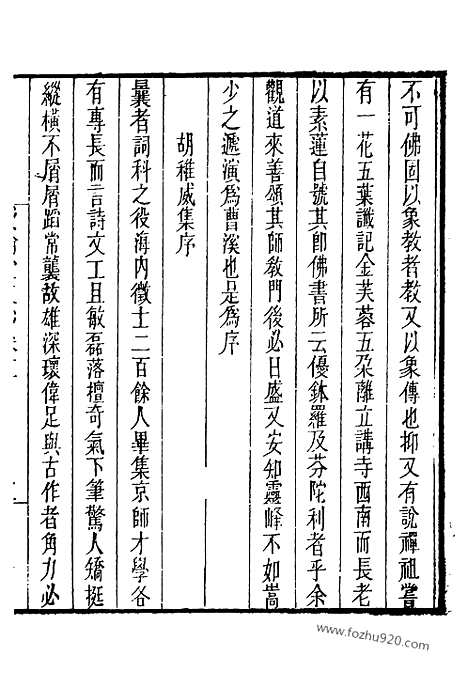 不可佛固以象教者教又以象傳也抑又有說禪祖嘗
有一花五葉讖記金芙蓉五朵離立講寺西南而長老
以素蓮自號其卽佛書所云優鉢羅及芬陀利者乎余
觀道來善領其師敎門後必日盛又安知靈峰不如嵩
少之遞演爲曹溪也是爲序
胡稚威集序
曩者詞科之役海內徵士二百餘人畢集京師才學各
有專長而言詩文工且敏磊落擅奇氣下筆驚人矯挺
縱橫不屑屑蹈常襲故雄深瓌偉足與古作者角力必
www.fozhu920.com